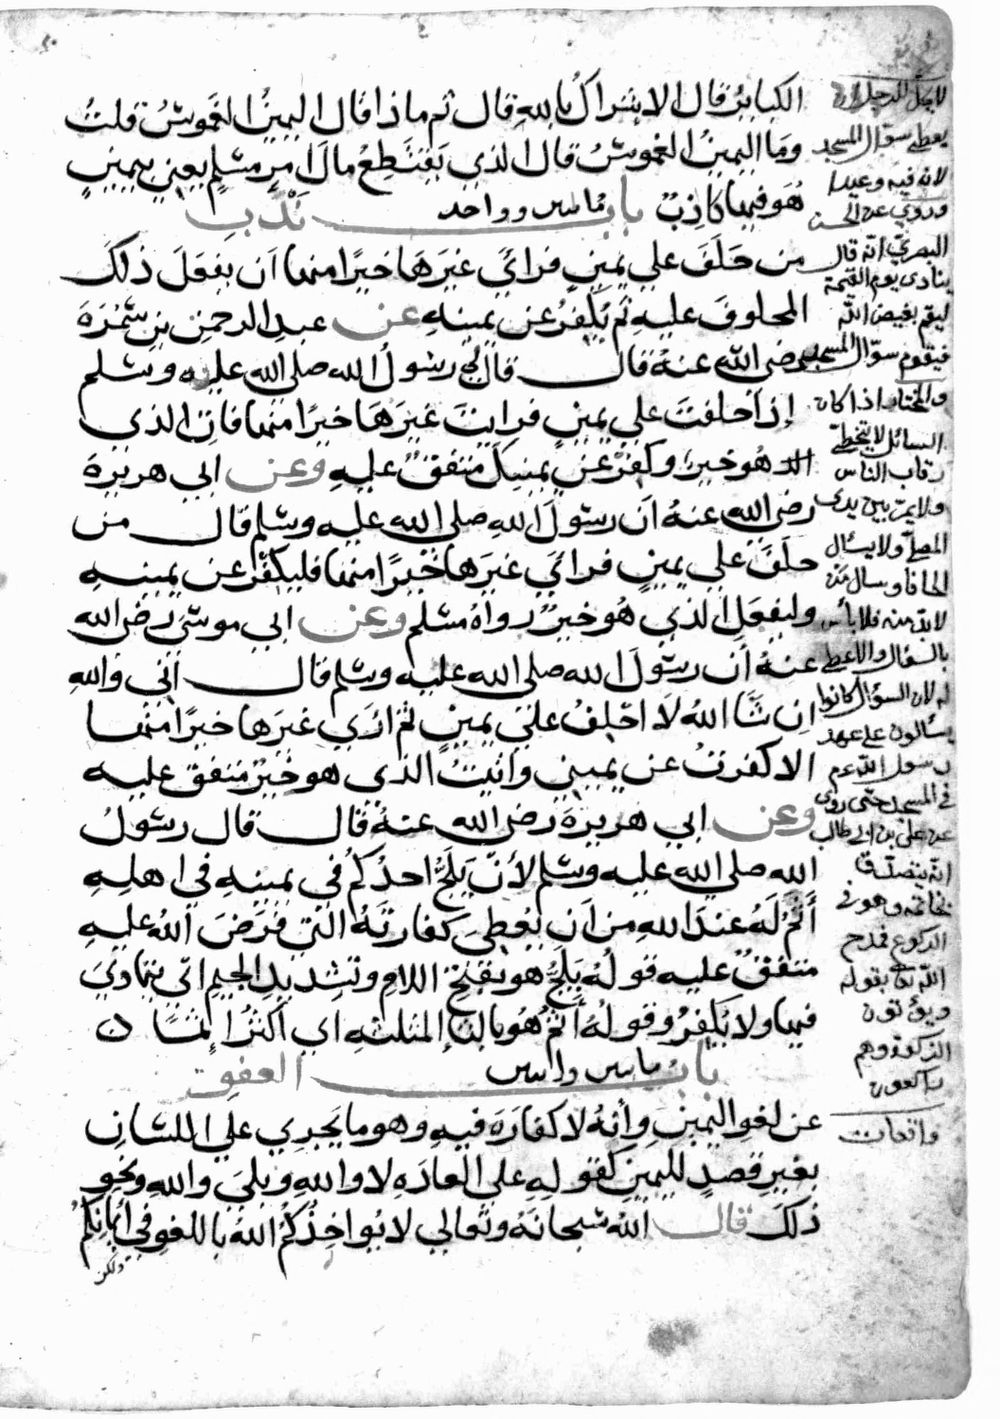 الكبائر قال الاشراك بالله قال ثم ماذا قال اليمين الغموس قلت
وما اليمين الغموس قال الذي يقتطع مال امرئ مسلم يعني بيمين
هو فيها كاذب باب ندب
من حلف على يمين فرأى غيرها خيرا منها ان يفعل ذلك
المحلوف عليه ثم يكفر عن يمينه عن عبد الرحمن بن سمرة
رضى الله عنه قال قال لي رسول الله صلى الله عليه وسلم
إذا حلفت على يمين فرايت غيرها خيرا منها فات الذى
هو خير وكفر عن يمينك متفق عليه وعن ابي هريرة
رضى الله عنه ان رسول الله صلى الله عليه وسلم قال من
حلف على يمين فرأى غيرها خيرا منها فليكفر عن يمينه
وليفعل الذي هو خير رواه مسلم وعن ابي موسى رضى الله
عنه أن رسول الله صلى الله عليه وسلم قال اني والله
ان شا الله لا احلف على يمين ثم ارى غيرها خيرا منها
الا كفرت عن يميني واتيت الذي هو خير متفق عليه
وعن ابي هريرة رضى الله عنه قال قال رسول
الله صلى الله عليه وسلم لأن يلج احدكم في يمينه في اهله
أثم له عند الله من ان يعطي كفارته التي فرض الله عليه
متفق عليه قوله يلج هو بفتح اللام وتشديد الجيم اى يتمادى
فيها ولا يكفر وقوله أثم هو بالثا المثلثه اى اكثر إثما
باب العفو
عن لغو اليمين وأنه لا كفارة فيه وهو ما يجري على اللسان
بغير قصد لليمين كقوله على العاده لا والله وبلى والله ونحو
ذلك قال الله سبحانه وتعالى لا يؤاخذكم الله باللغو في أيمانكم
ولكن
يعطى سؤال المسجد
لانه فيه وعيدا
وروي عن الحسن
البصري انه قال
ينادى يوم القيمة
ليقم بغيض الله
فيقوم سؤال المسجد
والمختار اذا كان
السائل لا يتخطى
رقاب الناس
ولا يمر بين يدى
المصلى ولا يسال
الحافا ويسال من
لا بد منه فلا بأس
بالسؤال والاعطى
له لان السؤال كانوا
يسألون على عهد
رسول الله عم
فى المسجد حتى روى
عن على بن ابى طالب
انه يتصدق
بخاتمه وهو فى
الركوع فمدح
الله تعا بقوله
ويؤتون
الزكوة وهم
راكعون
واقعات